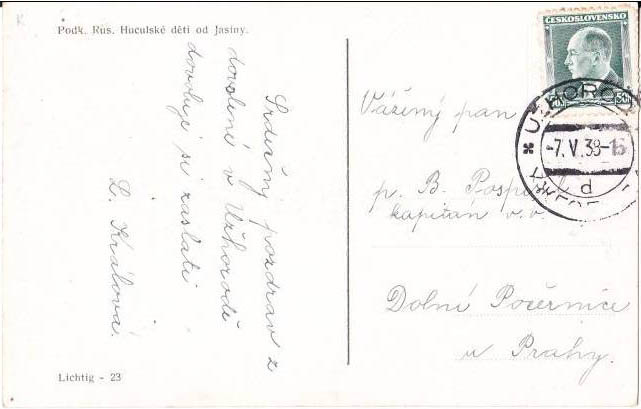 Podk. Rus. Huculské děti od Jasiny.
Srdečný pozdrav z
dovolené v Užhorodě
dovoluje si zaslati
L. Králová.
Lichtig - 23
ČESKOSLOVENSKO
50 50
UŽHOROD
-7.V.38-15
d
Vážený pan
p. B. Pospíšil
kapitán v.v.
Dolní Počernice
u Prahy.